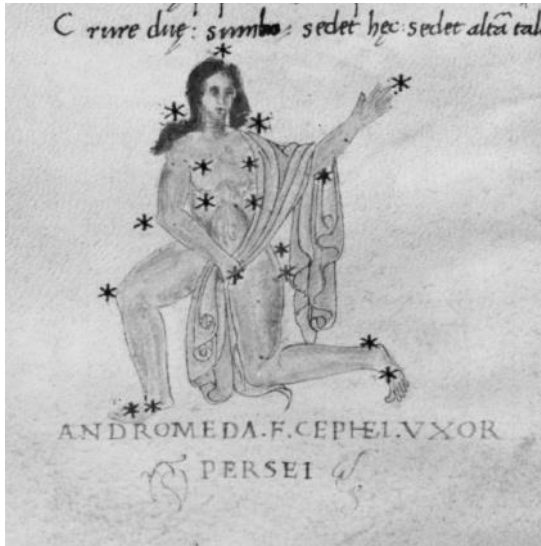 C rure duę: summo: sedet hęc: sedet altā tal
ANDROMEDA.F.CEPHEI.VXOR
PERSEI